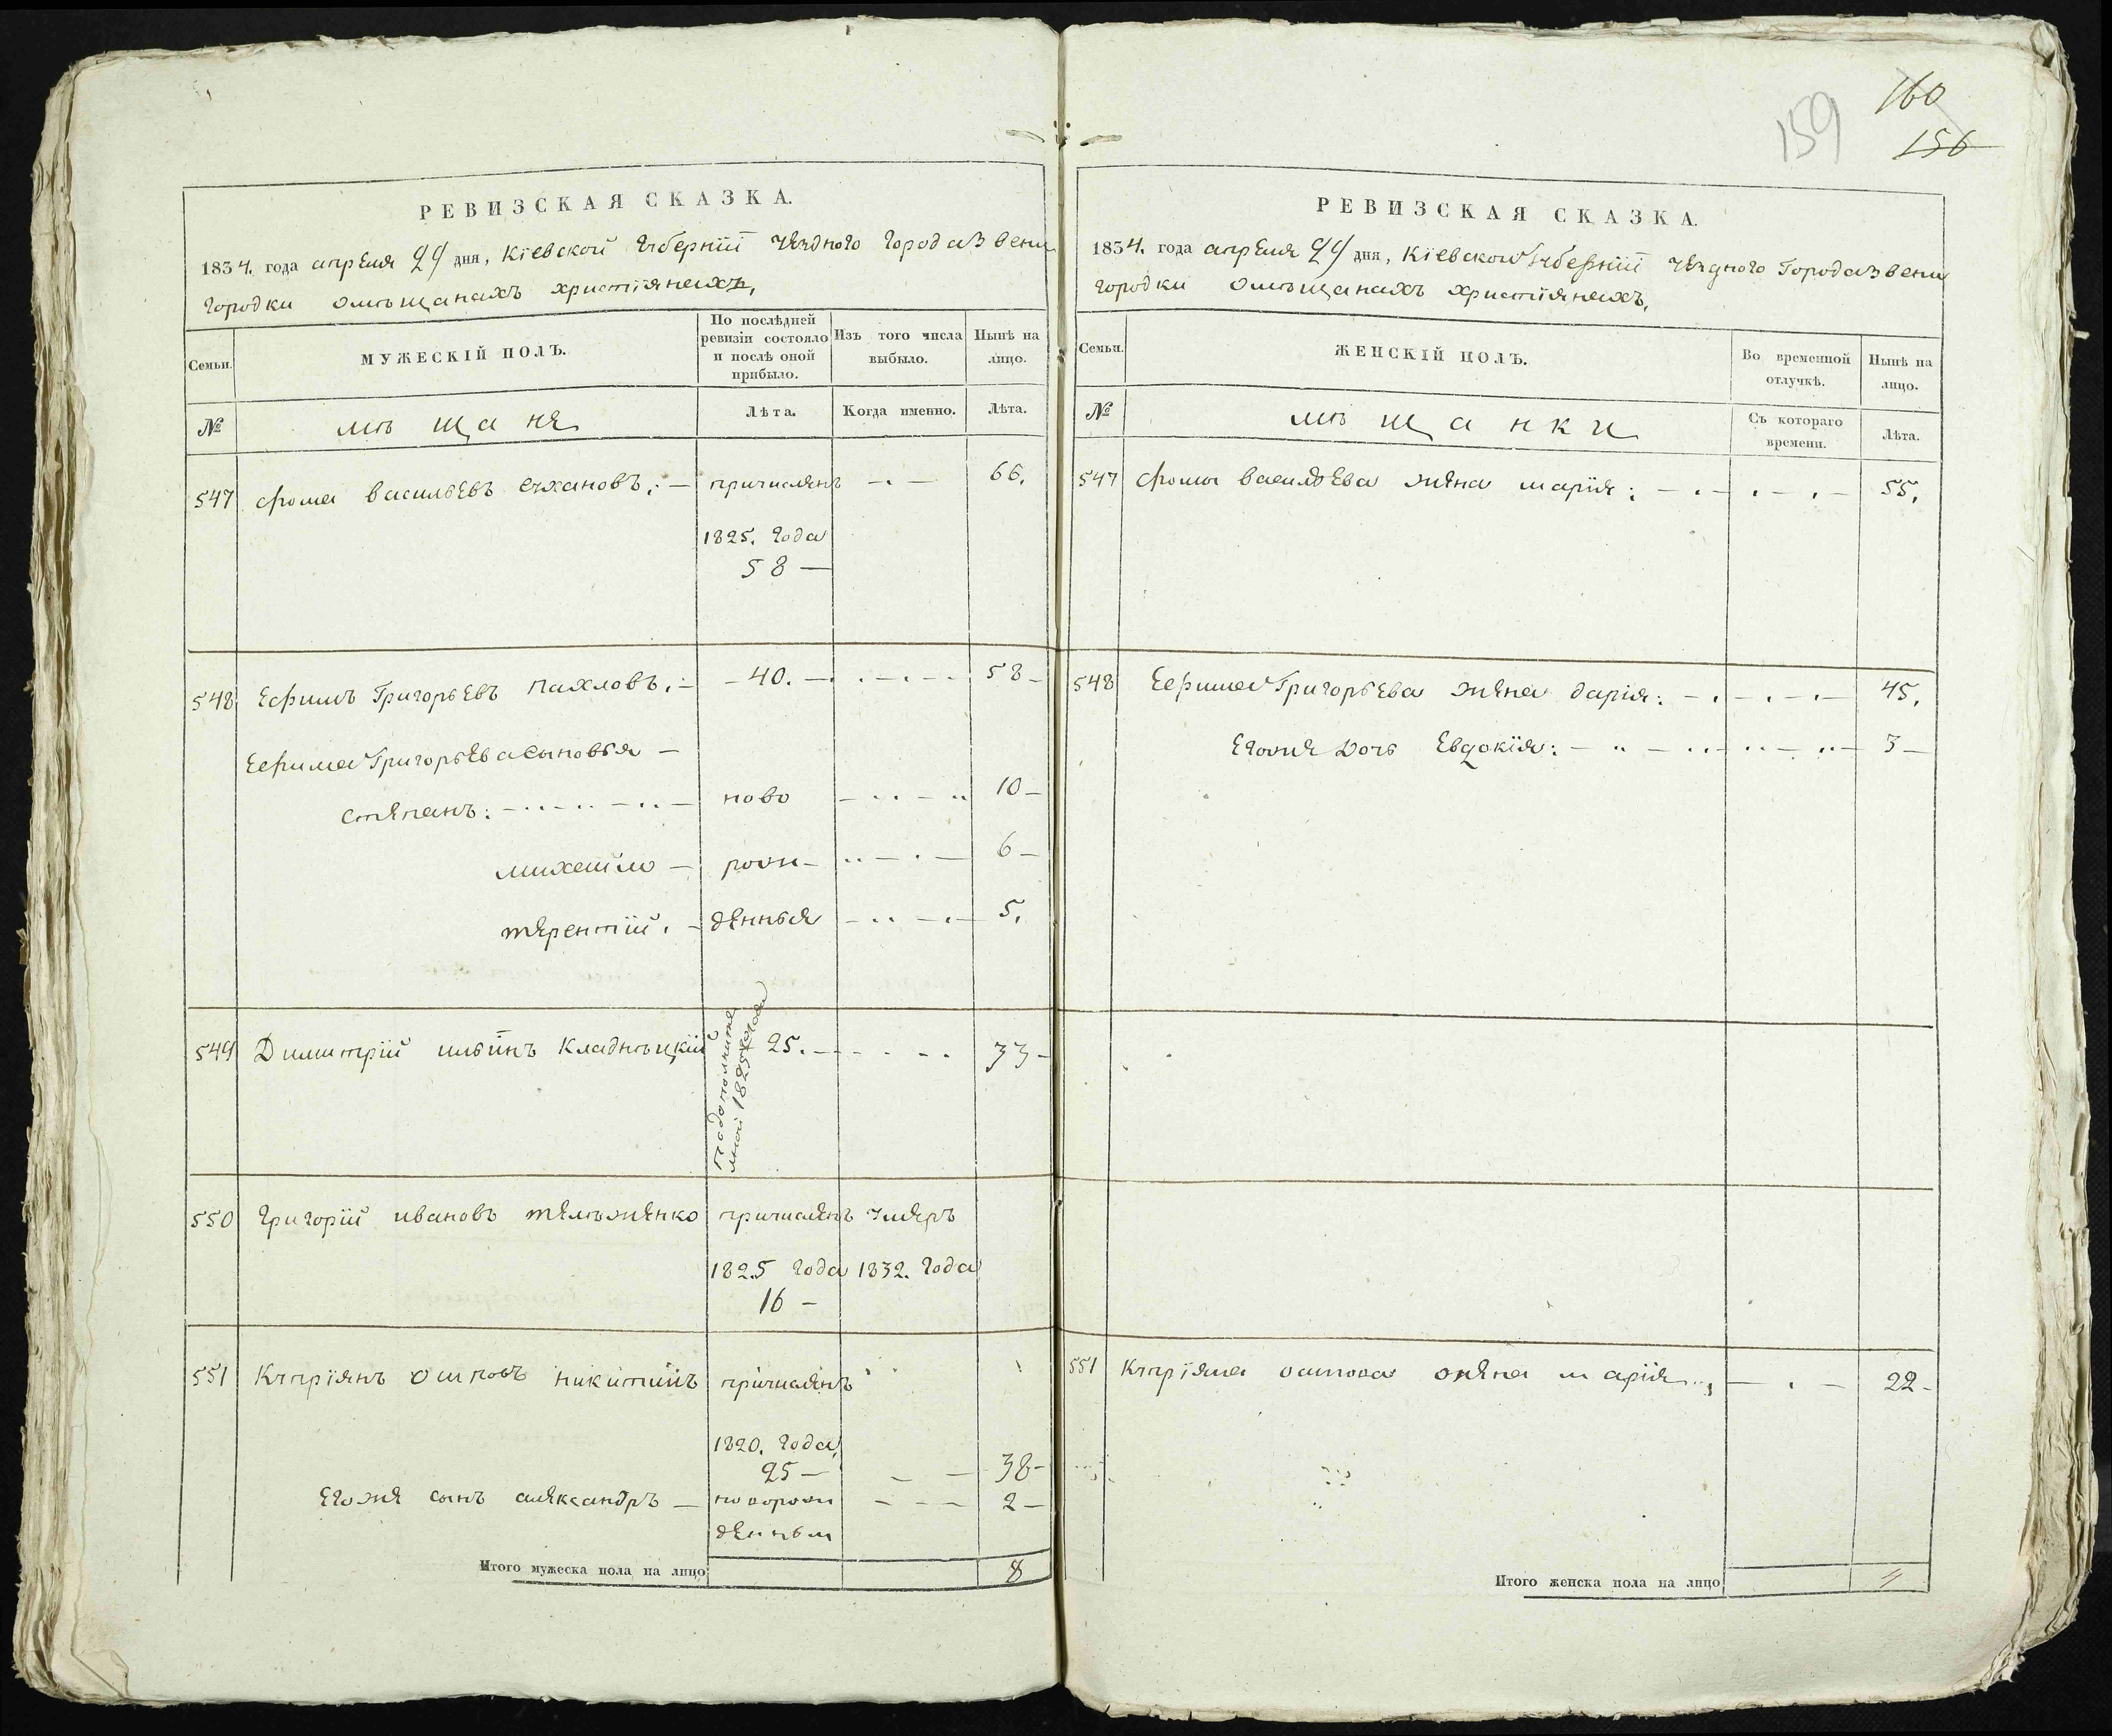 РЕВИЗСКАЯ СКАЗКА.
1834. года апреля 24 дня, Кіевской губерніи уезднаго города Звени
городки омѣщанахъ христіянахъ,
Семьи.
МУЖЕСКІЙ ПОЛЪ.
По послѣдней ревизіи состояло и послѣ оной прибыло.
Изъ того числа выбыло.
Нынѣ на лицо.
№
мѣщане
Лѣта.
Когда именно.
Лѣта.
547 фома васильевъ сухановъ: — причисленъ — . — 66.
1825. года
58 —
548 Ефимъ Григорьевъ пахловъ. — 40. — 58 —
Ефима Григорьева сыновья —
степанъ: — ново — 10 —
михайло — рож — 6 —
терентій. — денныя — 5.
549 Димитрій ильинъ Кладницкій
по дополните
лной 1825 года
25. — 33 —
550 григорій ивановъ телѣженко причисленъ умеръ
1825 года 1832. года
16 —
551 Купріянъ осиповъ никитинъ причисленъ
1820. года
25 — 38 —
Егоже сынъ александръ — новорож — 2 —
денным
Итого мужеска пола на лицо 8
159
160
156
РЕВИЗСКАЯ СКАЗКА.
1834. года апреля 24 дня, Кіевской губерніи уезднаго города Звени
городки омѣщанахъ христіянахъ,
Семьи.
ЖЕНСКІЙ ПОЛЪ.
Во временной отлучкѣ.
Нынѣ на лицо.
№
мѣщанки
Съ котораго времени.
Лѣта.
547 фомы васильева жена марія: — 55.
548 Ефима Григорьева жена дарія: — 45.
Егоже дочь Евдокія: — 3 —
551 Купріяна осипова жена марія — 22 —
Итого женска пола на лицо 4